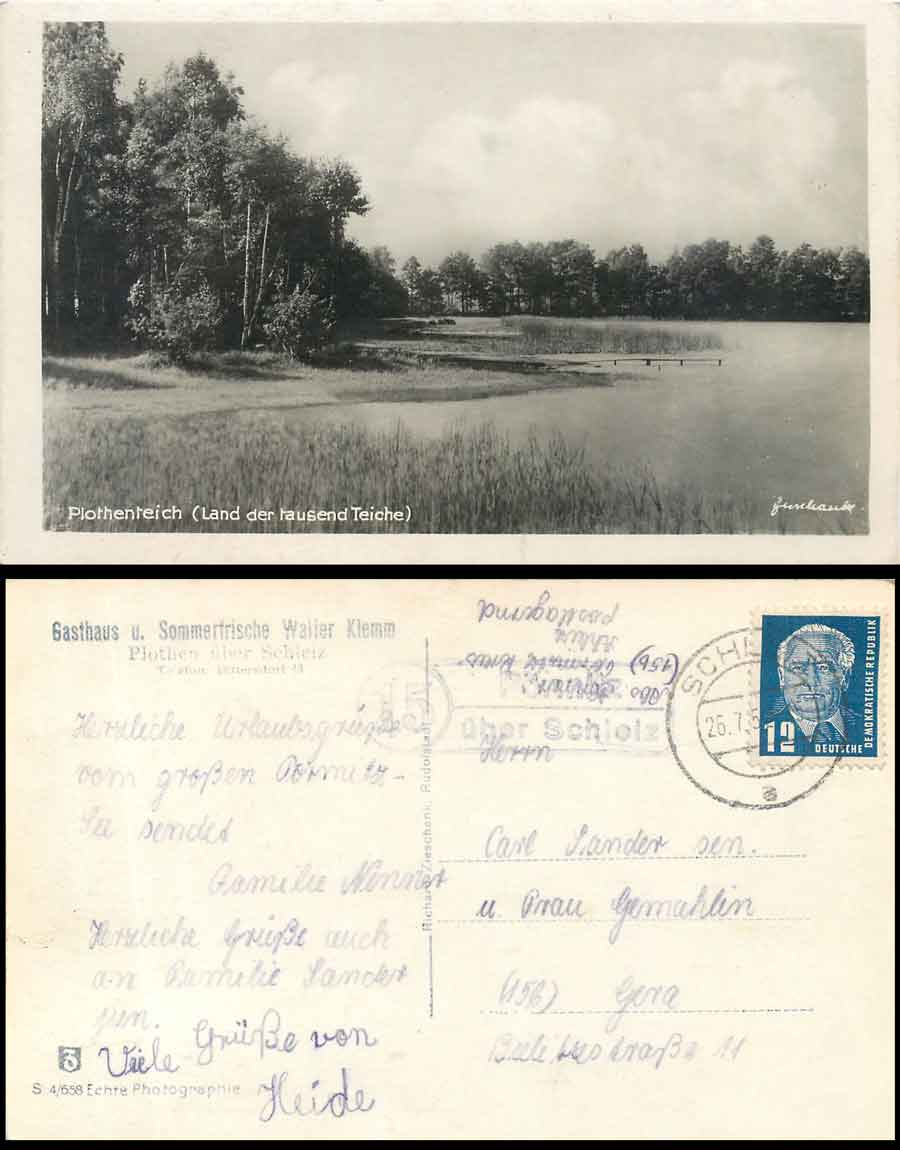 Plothenteich (Land der tausend Teiche)
Gasthaus u. Sommerfrische Walter Klemm
Plothen über Schleiz
Herzliche Urlaubsgrüße
vom großen Pörmitz-
See sendet
Familie
Herzliche Grüße auch
an Familie Sander
jun.
Viele Grüße von
Heide
S 4/658 Echte Photographie
Richard Zieschank, Rudolstadt
(15b)
postlagernd
15
über Schleiz
SCH
26.7.5
a
12
DEUTSCHE
DEMOKRATISCHE REPUBLIK
Herrn
Carl Sander sen.
u. Frau Gemahlin
(15b) Gera
11